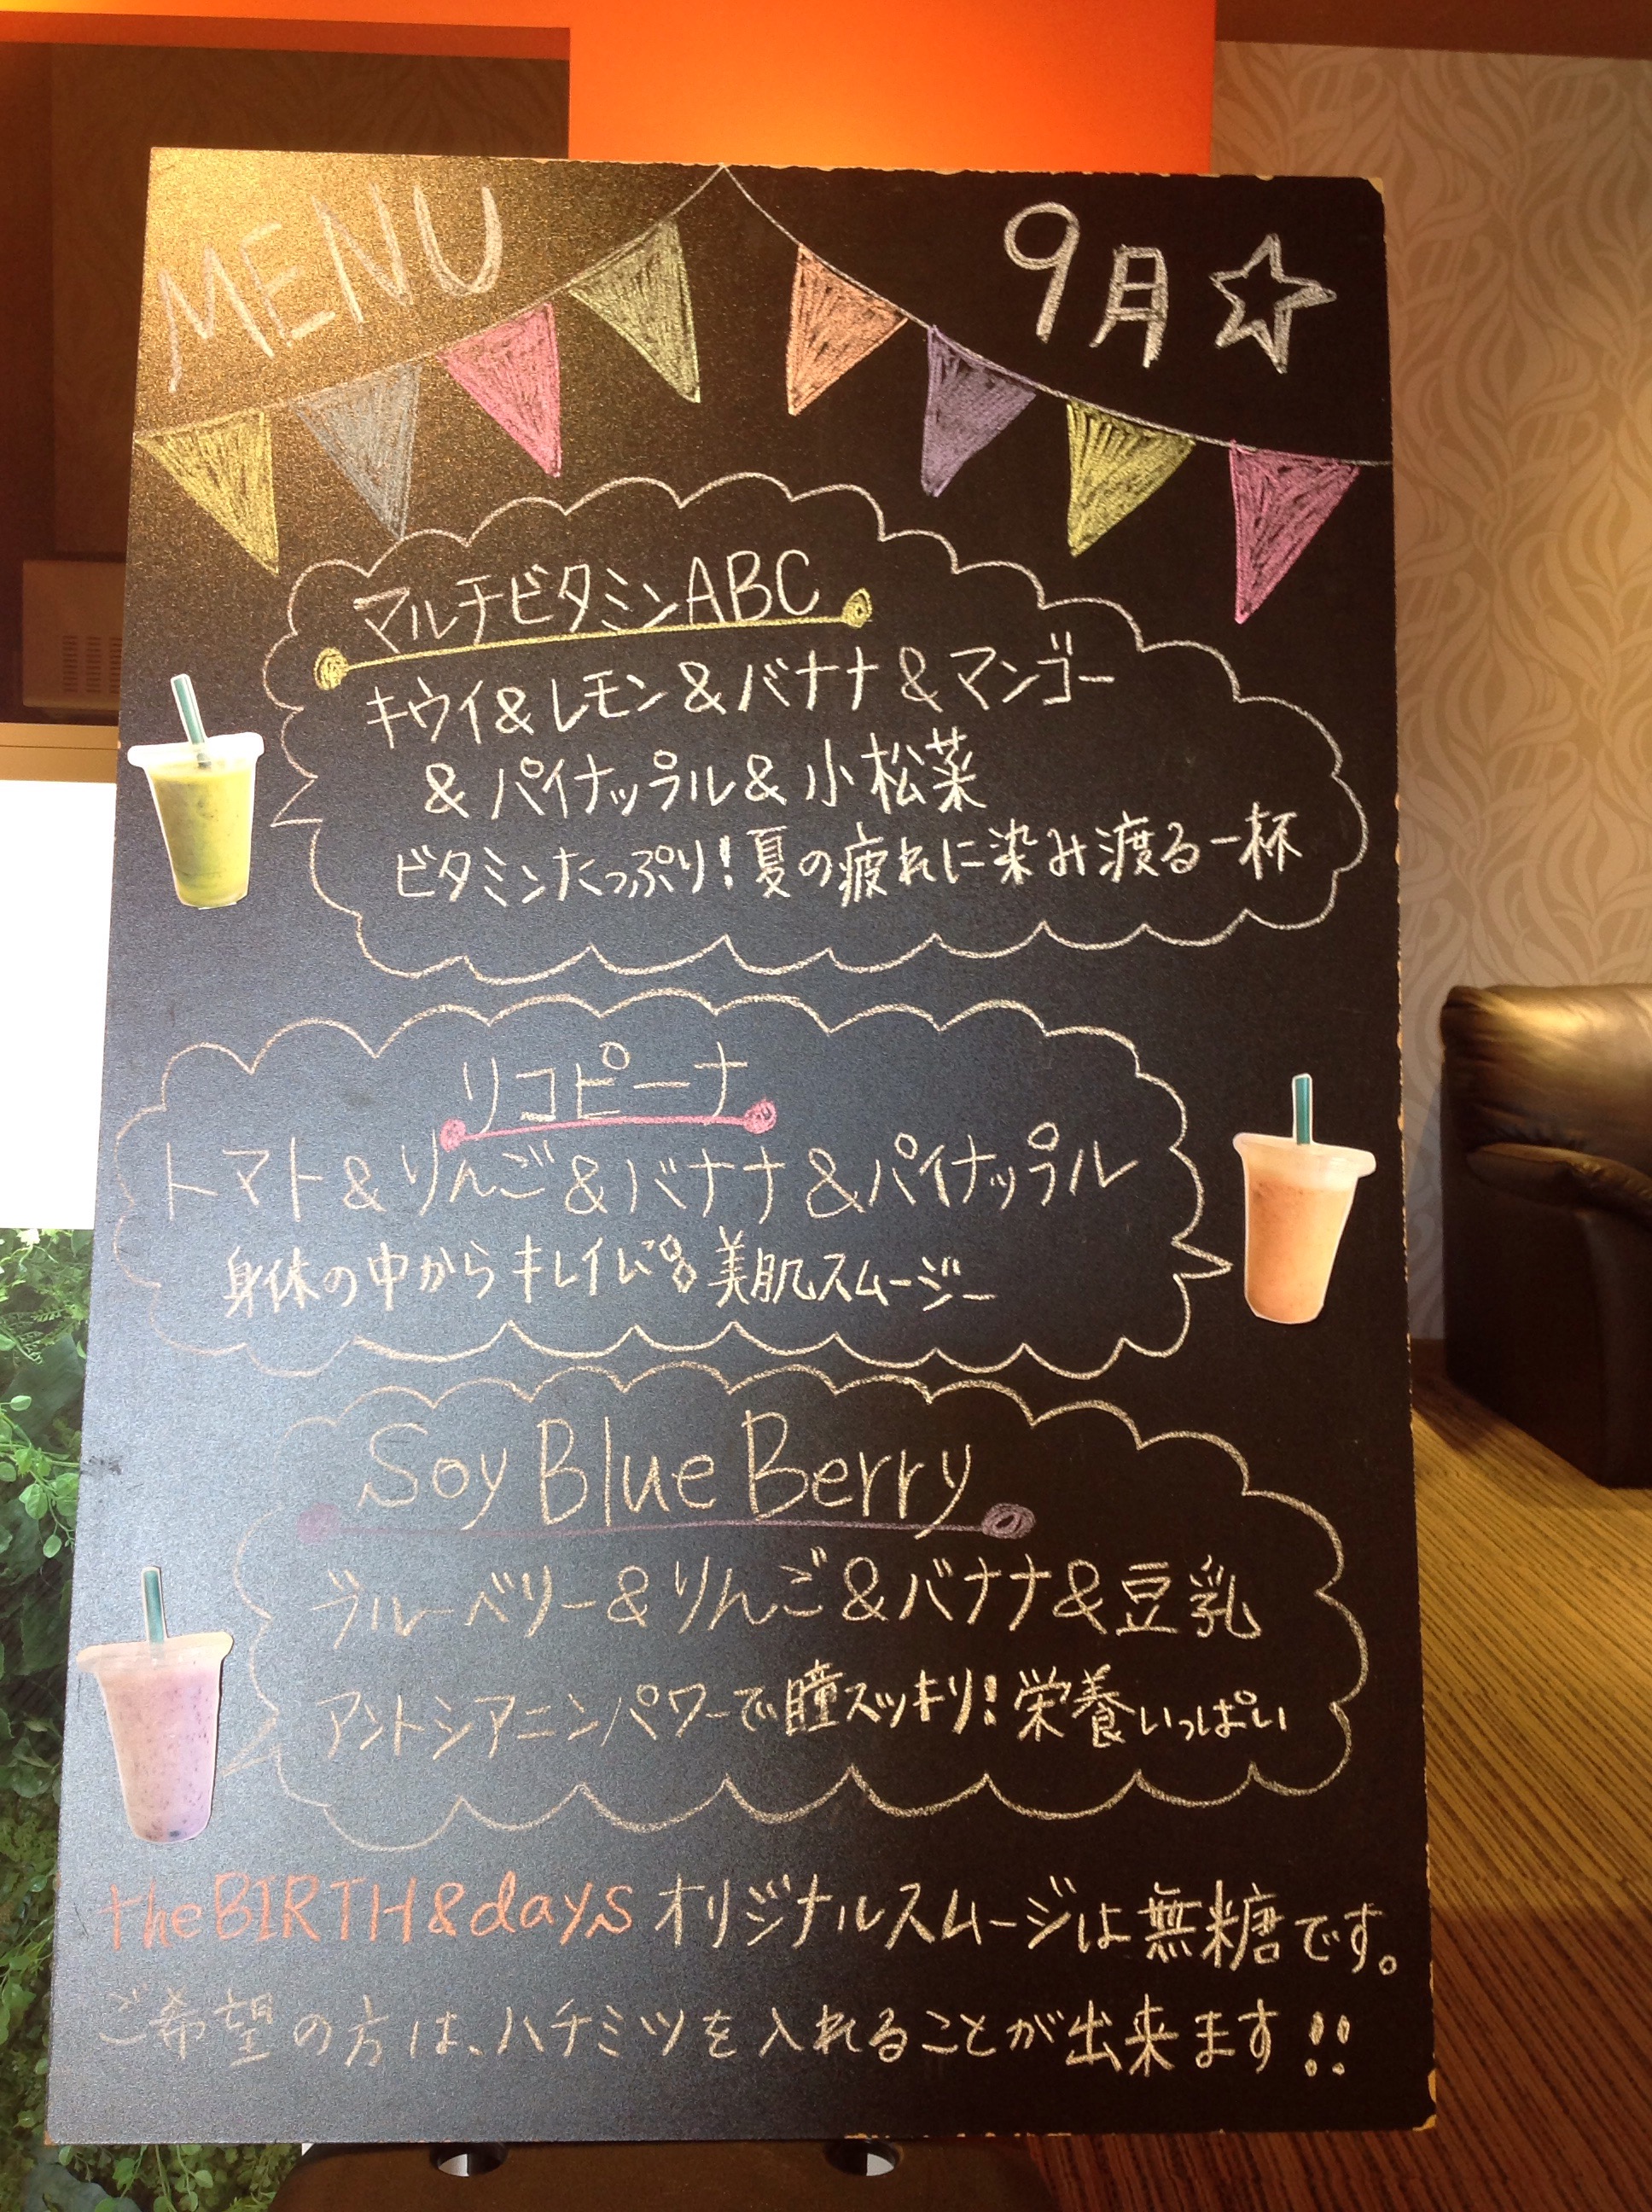 MENU
9月☆
マルチビタミンABC
キウイ&レモン&バナナ&マンゴー
&パイナップル&小松菜
ビタミンたっぷり!夏の疲れに染み渡る一杯
リコピーナ
トマト&りんご&バナナ&パイナップル
身体の中からキレイに 美肌スムージー
Soy Blue Berry
ブルーベリー&りんご&バナナ&豆乳
アントシアニンパワーで瞳スッキリ!栄養いっぱい
the BIRTH&days オリジナルスムージーは無糖です。
ご希望の方は、ハチミツを入れることが出来ます!!